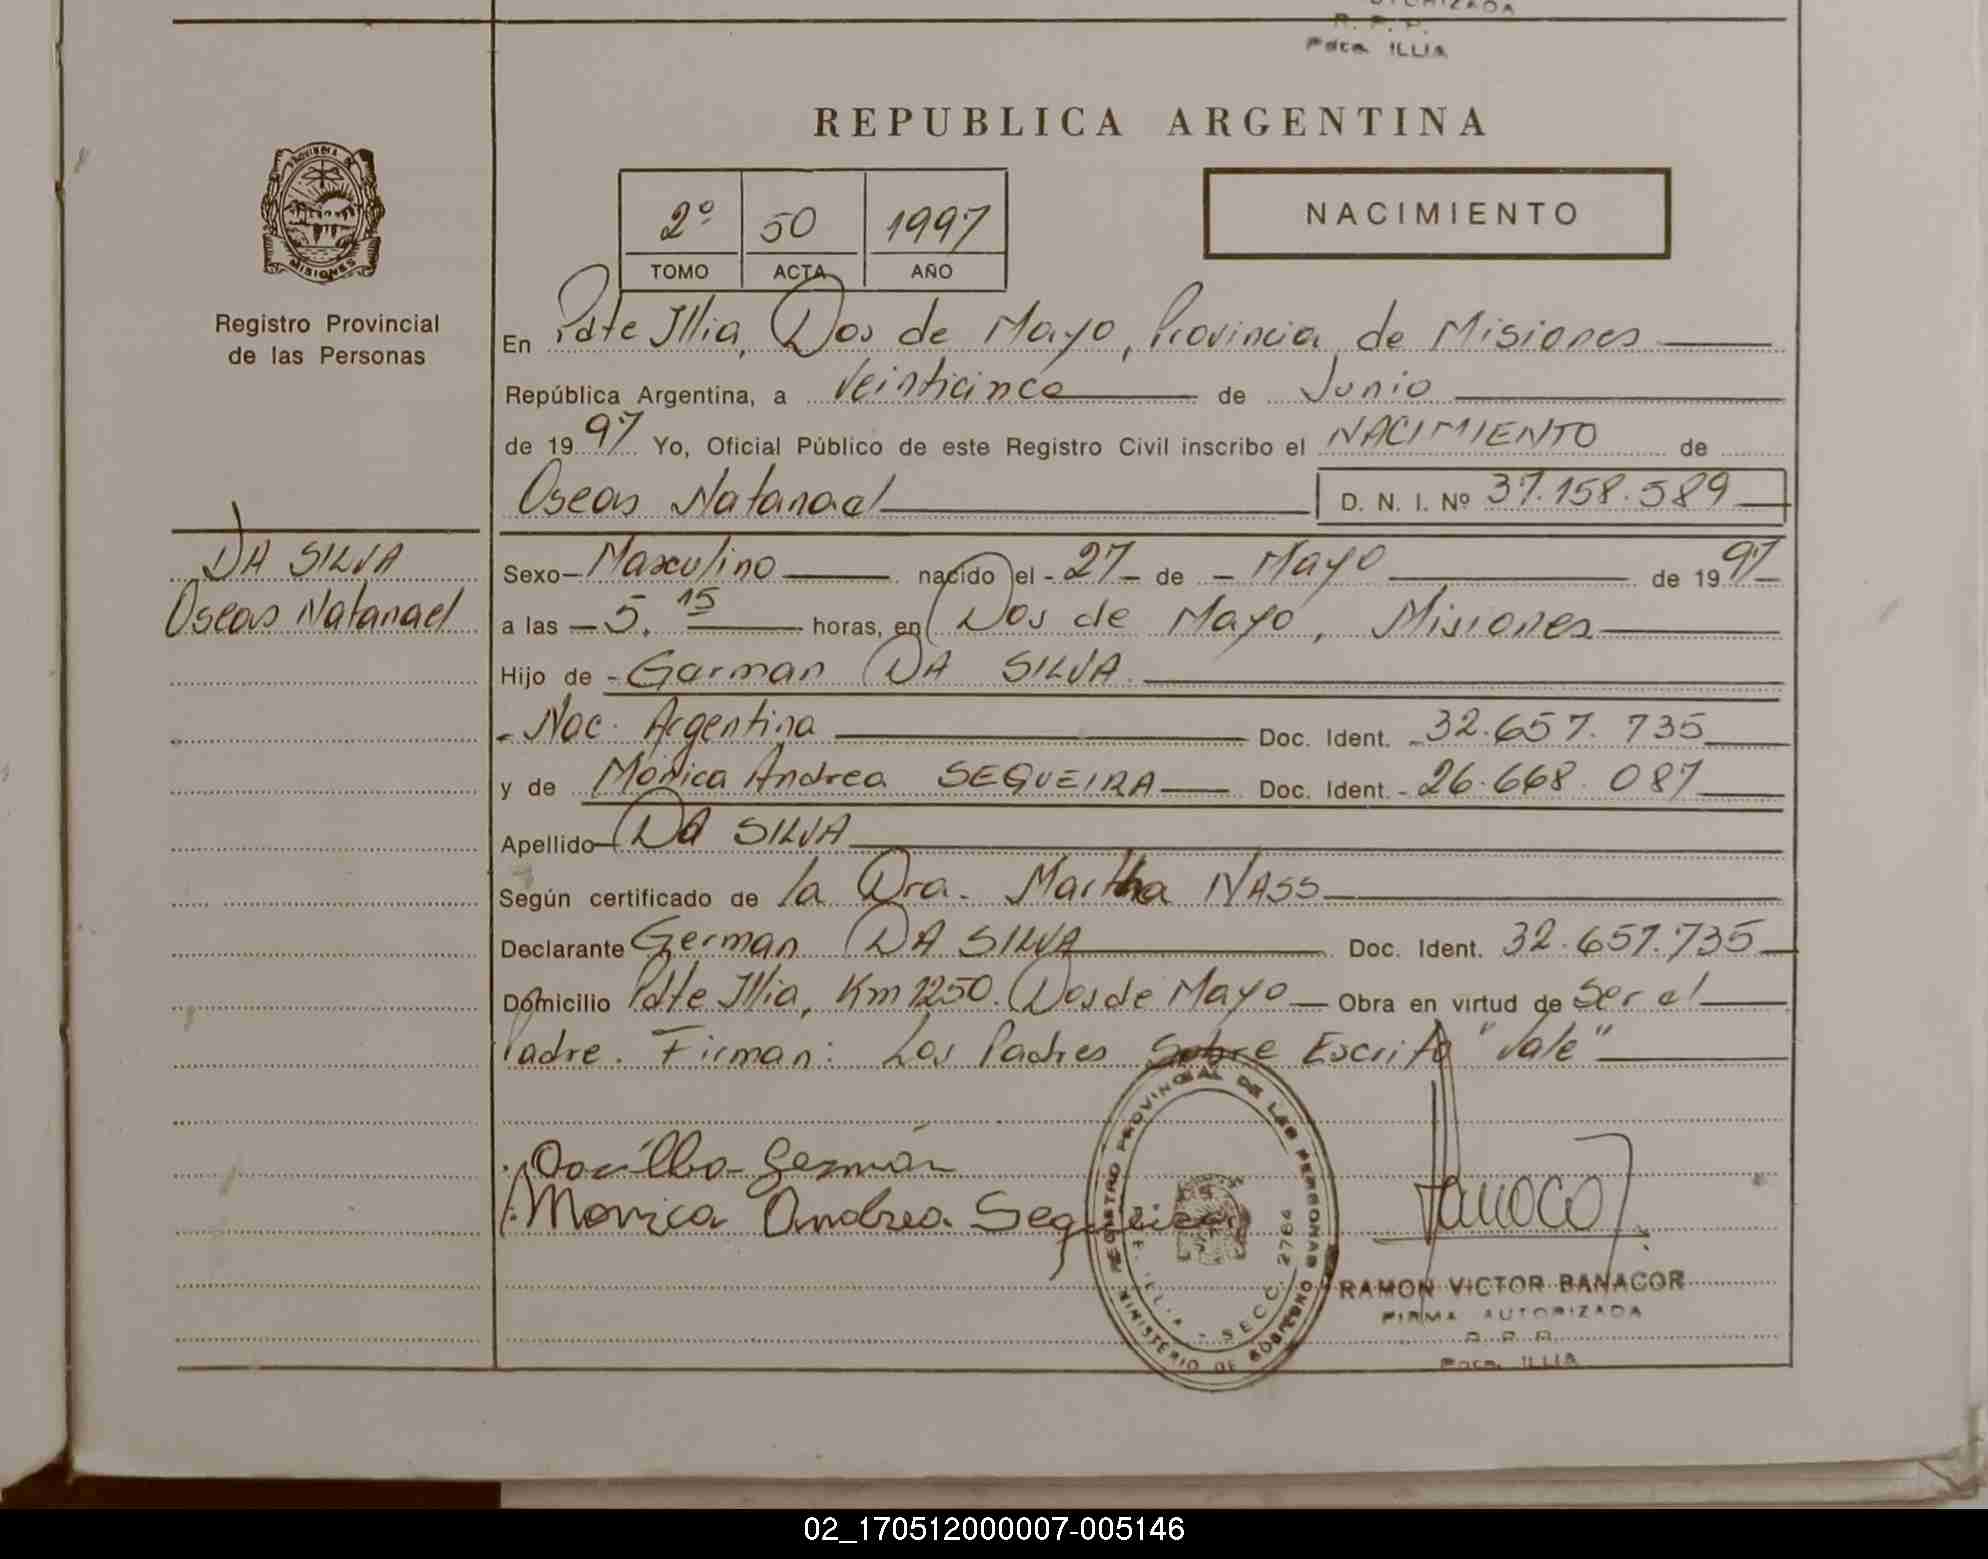 Pdca ILLIA
REPUBLICA ARGENTINA
PROVINCIA DE
MISIONES
Registro Provincial
de las Personas
2º 50 1997
TOMO ACTA AÑO
NACIMIENTO
En Pdte Illia, Dos de Mayo, Provincia de Misiones
República Argentina, a Veinticinco de Junio
de 1997 Yo, Oficial Público de este Registro Civil inscribo el NACIMIENTO de
Oseas Natanael D. N. I. Nº 37.158.589
DA SILVA
Oseas Natanael
Sexo Masculino nacido el 27 de Mayo de 1997
a las 5.15 horas, en Dos de Mayo, Misiones
Hijo de German DA SILVA
Nac. Argentina Doc. Ident. 32.657.735
y de Mónica Andrea SEQUEIRA Doc. Ident. 26.668.087
Apellido DA SILVA
Según certificado de la Dra. Martha NASS
Declarante German DA SILVA Doc. Ident. 32.657.735
Domicilio Pdte Illia, Km 1250. Dos de Mayo Obra en virtud de Ser el
Padre. Firman: Los Padres Sobre Escrito "Vale"
Dasilba German
Monica Andrea Sequeira
REGISTRO PROVINCIAL DE LAS PERSONAS
MINISTERIO DE GOBIERNO
SECC. 2764
RAMON VICTOR BANACOR
FIRMA AUTORIZADA
R. P. P.
Pdca. ILLIA
02_170512000007-005146